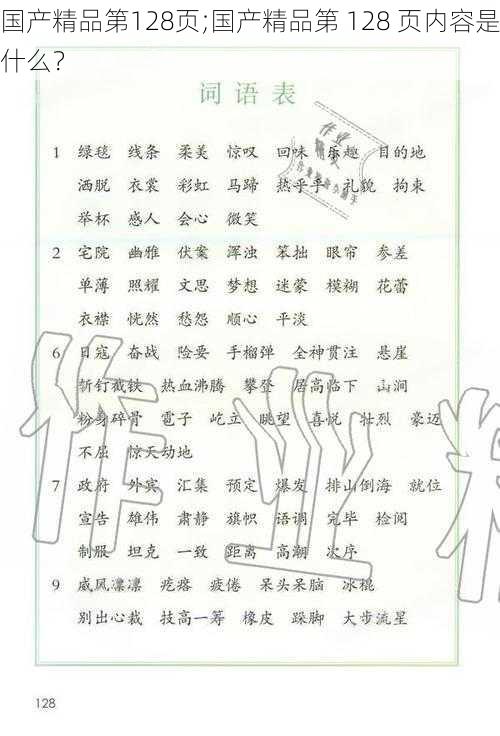 国产精品第128页;国产精品第 128 页内容是
什么?
词语表
1 绿毯 线条 柔美 惊叹 回味 乐趣 目的地
洒脱 衣裳 彩虹 马蹄 热乎乎 礼貌 拘束
举杯 感人 会心 微笑
2 宅院 幽雅 伏案 浑浊 笨拙 眼帘 参差
单薄 照耀 文思 梦想 迷蒙 模糊 花蕾
衣襟 恍然 愁怨 顺心 平淡
6 日寇 奋战 险要 手榴弹 全神贯注 悬崖
斩钉截铁 热血沸腾 攀登 居高临下 山涧
粉身碎骨 雹子 屹立 眺望 喜悦 壮烈 豪迈
不屈 惊天动地
7 政府 外宾 汇集 预定 爆发 排山倒海 就位
宣告 雄伟 肃静 旗帜 语调 完毕 检阅
制服 坦克 一致 距离 高潮 次序
9 威风凛凛 疙瘩 疲倦 呆头呆脑 冰棍
别出心裁 技高一筹 橡皮 跺脚 大步流星
128
作业精